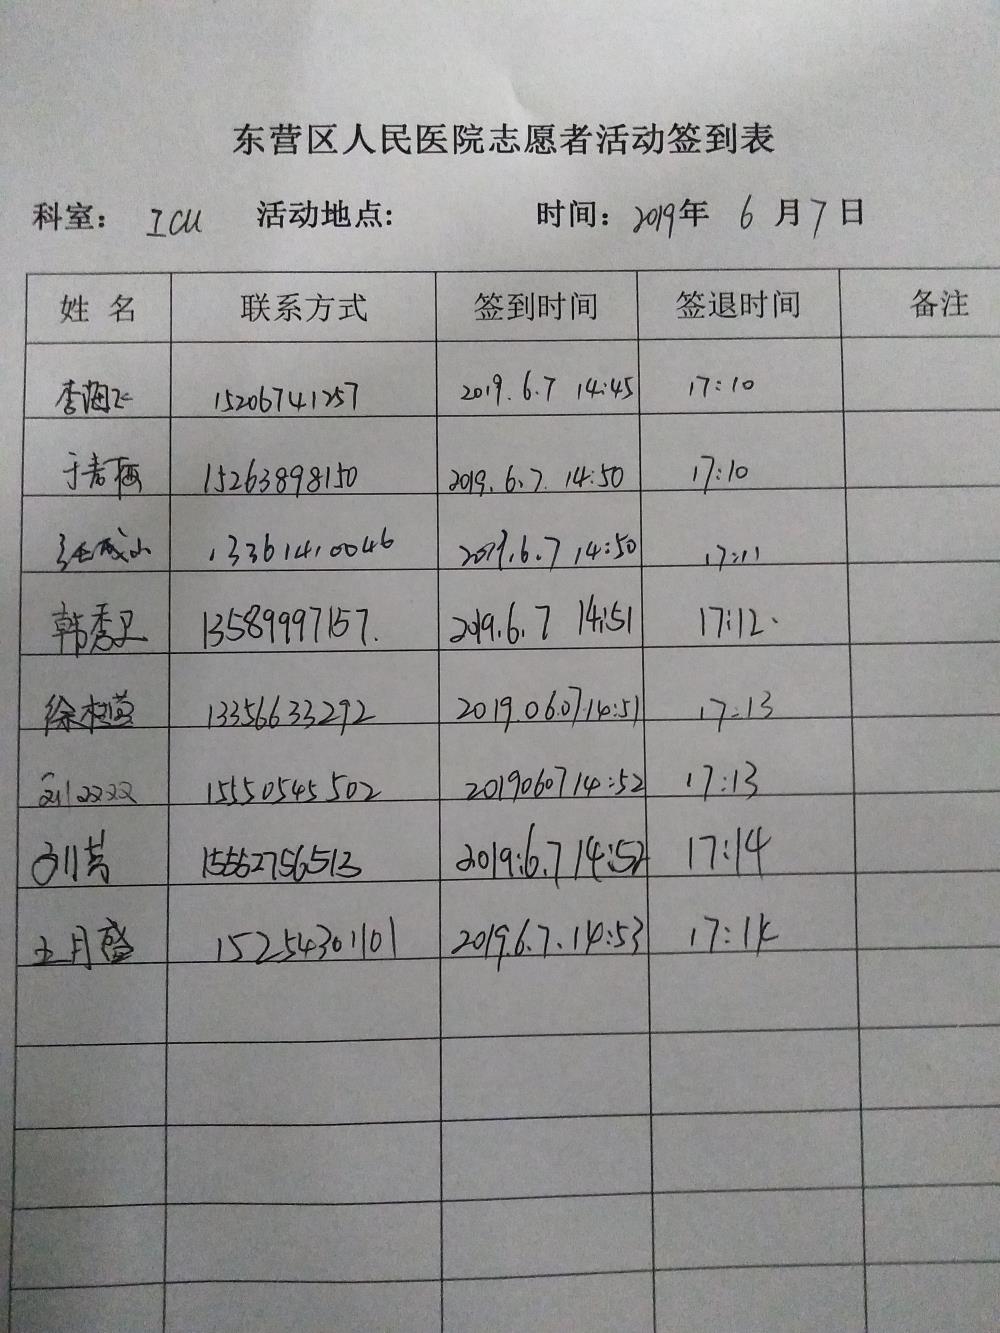 东营区人民医院志愿者活动签到表
科室: ICU 活动地点: 时间: 2019年 6 月 7 日
姓 名 联系方式 签到时间 签退时间 备注
李海飞 15206741257 2019.6.7 14:45 17:10
于 15263898150 2019.6.7. 14:50 17:10
13361410046 2019.6.7 14:50 17:11
韩秀 13589997157. 2019.6.7 14:51 17:12.
徐 13356633292 2019.06.07.14:51 17:13
刘 15550545502 20190607 14:52 17:13
刘芳 15562756513 2019:6.7 14:52 17:14
王月盛 15254301101 2019.6.7.14:53 17:14